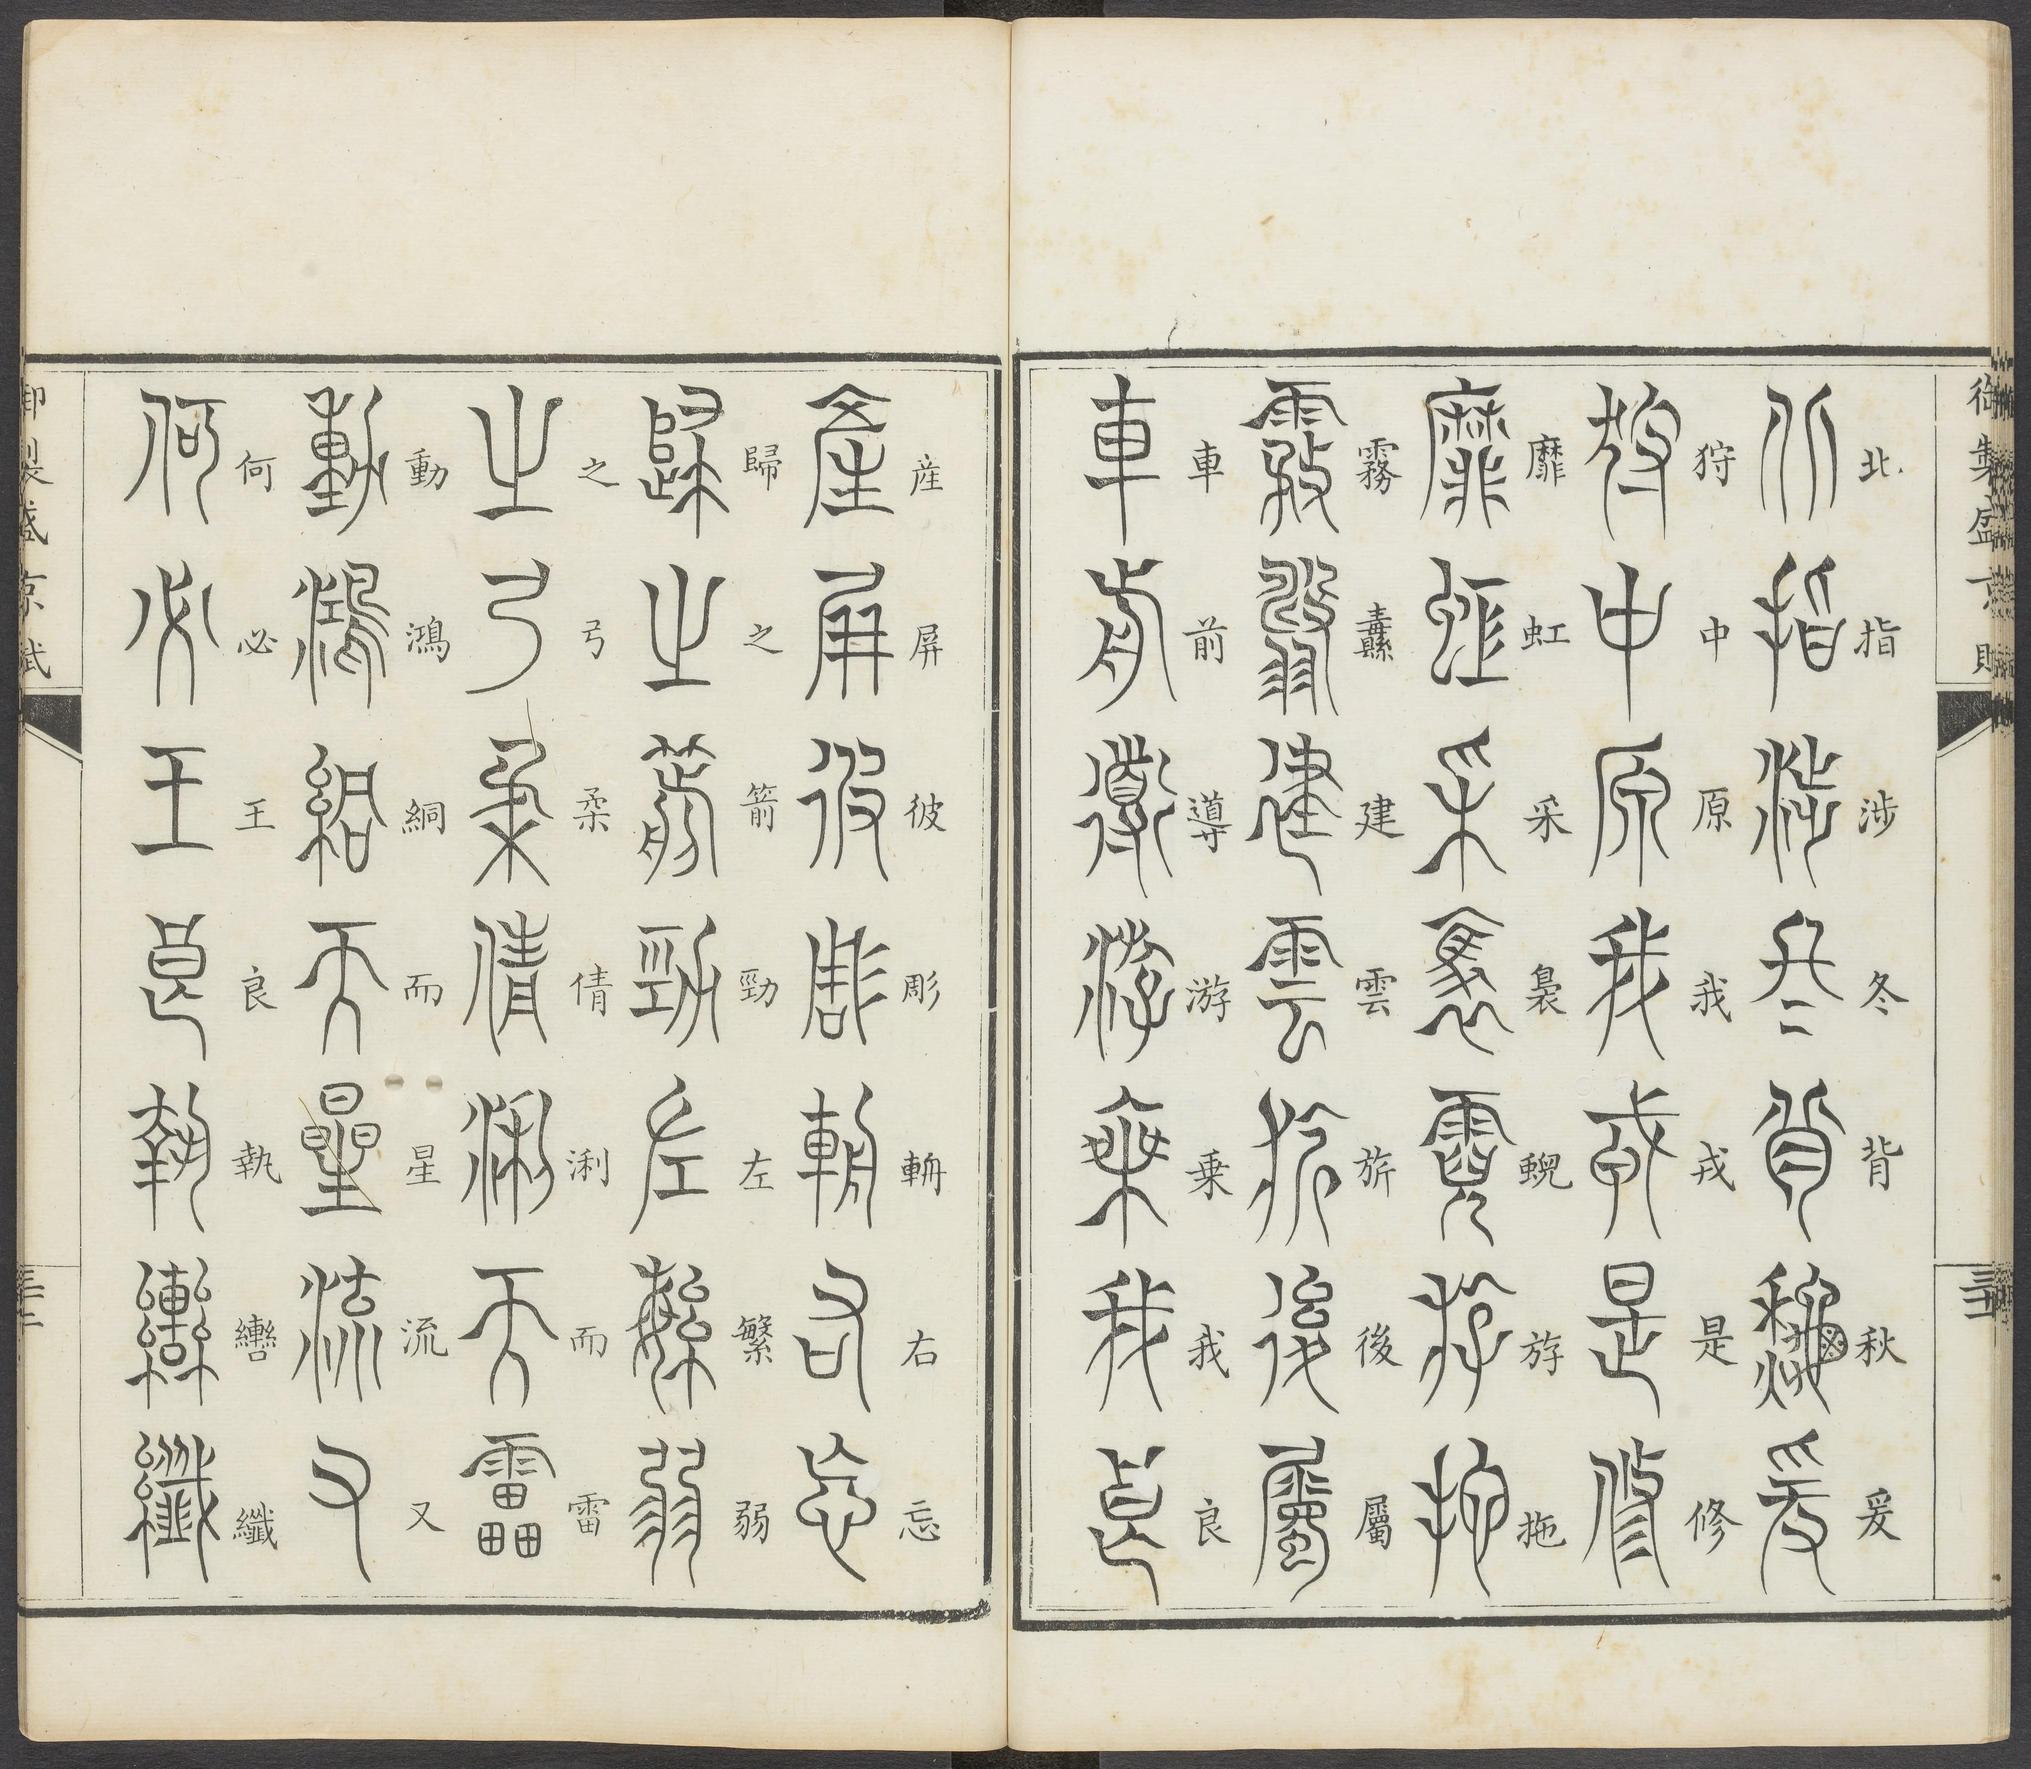 御製盛京賦
北指涉冬背秋爰
狩中原我戎是修
靡虹采裊蜺斿拖
霧纛建雲旂後屬
車前導游乗我良
産屏彼彫軿右忘
歸之箭勁左繁弱
之弓柔倩浰而雷
動鴻絅而星流又
何必王良執轡纖
御製盛京賦